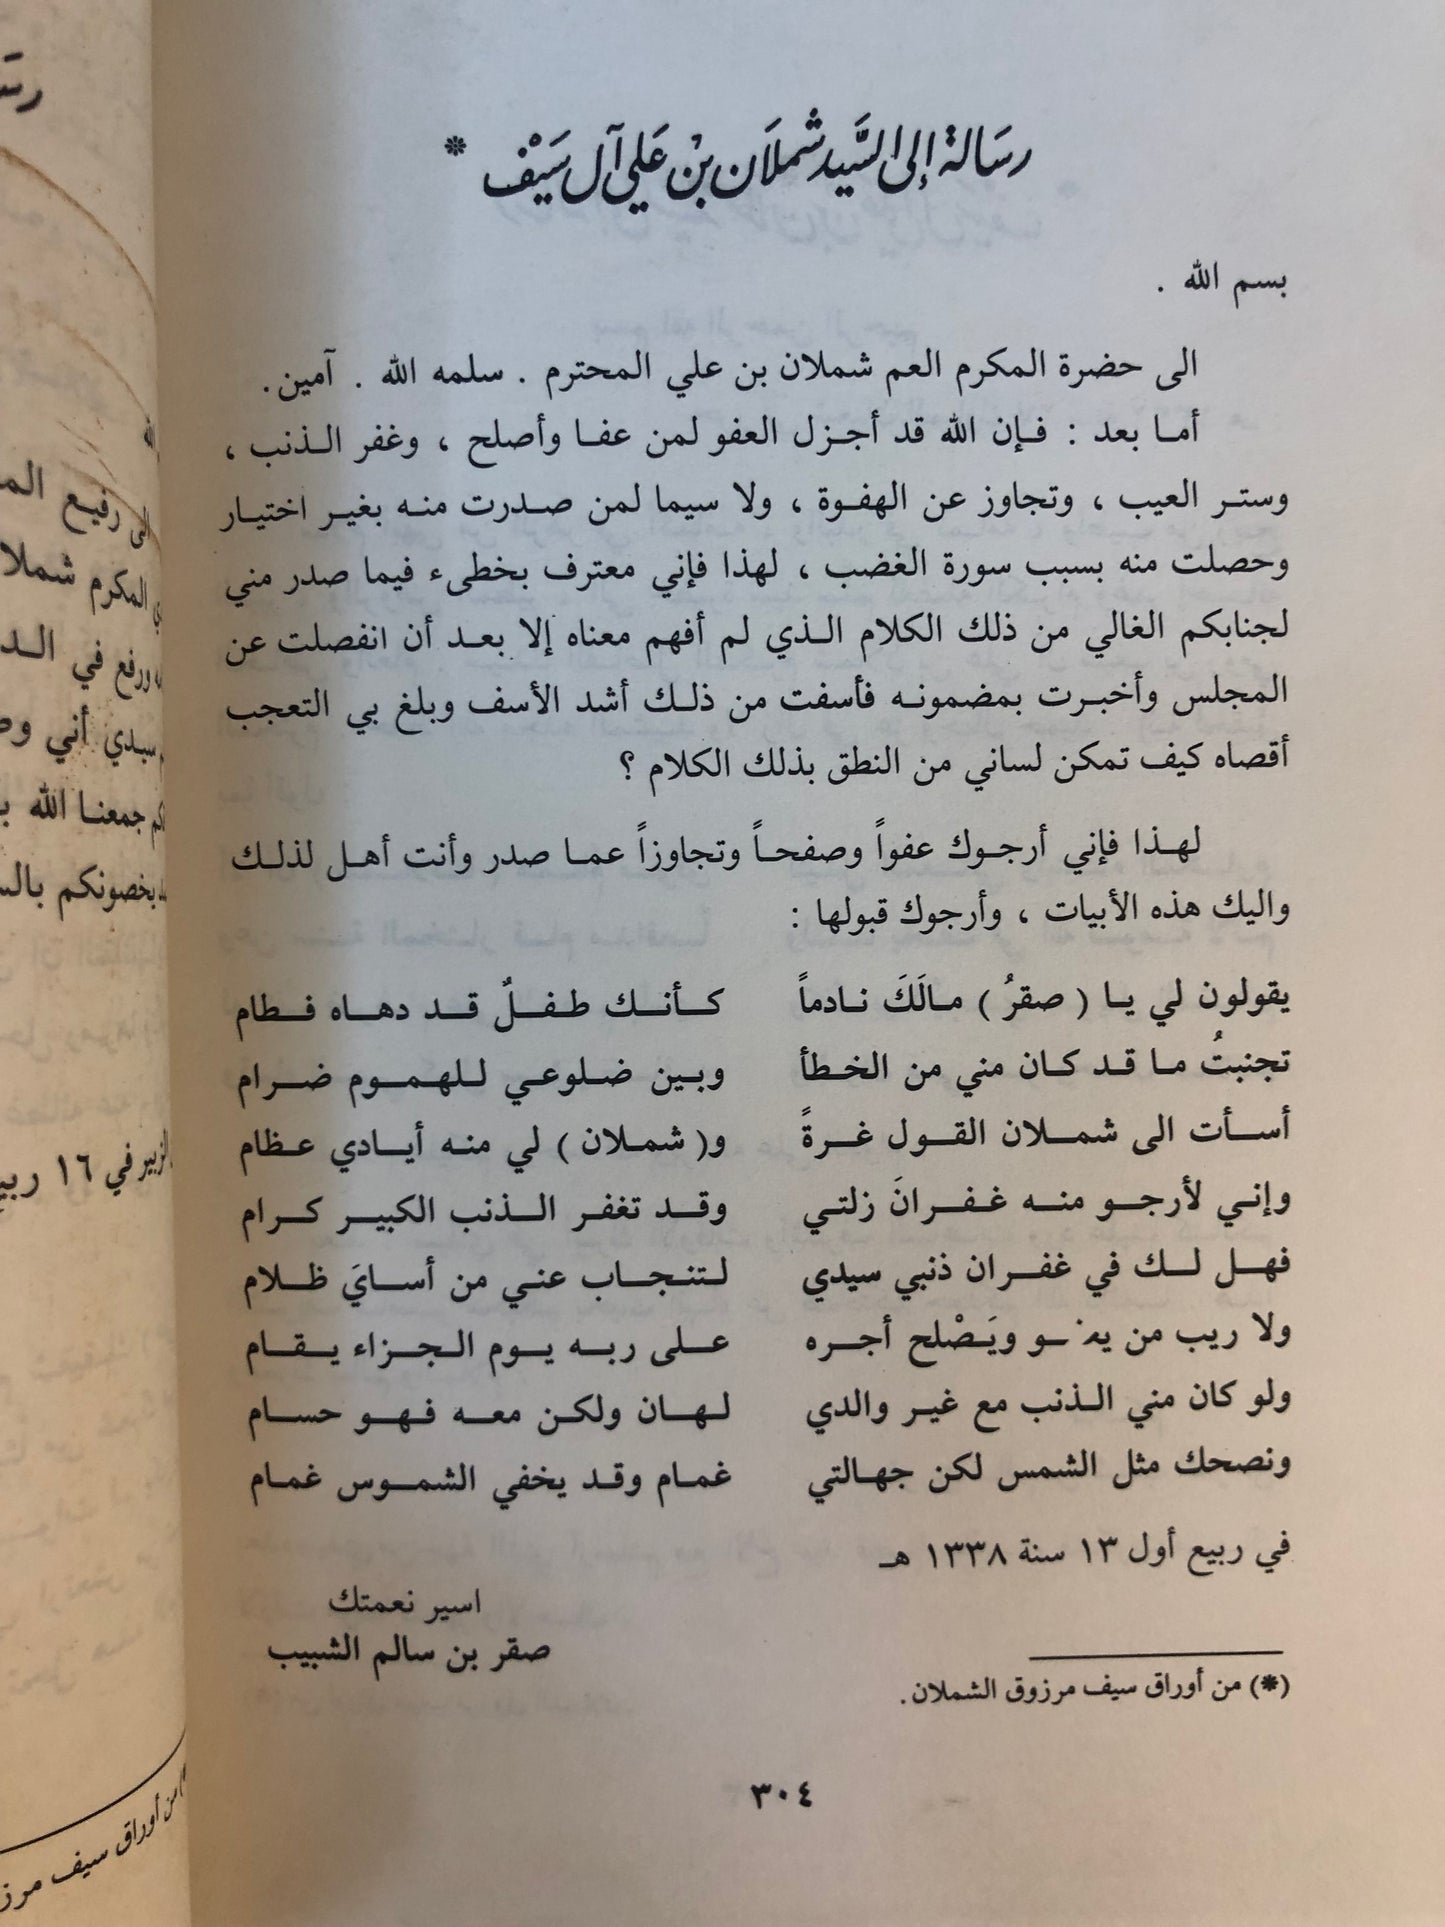 رسَالة إلى السَّيد شملَان بنْ عَلي آل سَيْف *
بسم الله .
الى حضرة المكرم العم شملان بن علي المحترم . سلمه الله . آمين .
أما بعد : فإن الله قد أجزل العفو لمن عفا وأصلح ، وغفر الذنب ،
وستر العيب ، وتجاوز عن الهفوة ، ولا سيما لمن صدرت منه بغير اختيار
وحصلت منه بسبب سورة الغضب ، لهذا فإني معترف بخطىء فيما صدر مني
لجنابكم الغالي من ذلك الكلام الذي لم أفهم معناه إلا بعد أن انفصلت عن
المجلس وأخبرت بمضمونه فأسفت من ذلك أشد الأسف وبلغ بي التعجب
أقصاه كيف تمكن لساني من النطق بذلك الكلام ؟
لهذا فإني أرجوك عفواً وصفحاً وتجاوزاً عما صدر وأنت أهل لذلك
واليك هذه الأبيات ، وأرجوك قبولها :
يقولون لي يا ( صقرُ ) مالَكَ نادماً كأنك طفلٌ قد دهاه فطام
تجنبتُ ما قد كان مني من الخطأ وبين ضلوعي للهموم ضرام
أسأت الى شملان القول غرةً و( شملان ) لي منه أيادي عظام
وإني لأرجو منه غفرانَ زلتي وقد تغفر الذنب الكبير كرام
فهل لك في غفران ذنبي سيدي لتنجاب عني من أسايَ ظلام
ولا ريب من يعفو ويَصْلح أجره على ربه يوم الجزاء يقام
ولو كان مني الذنب مع غير والدي لهان ولكن معه فهو حسام
ونصحك مثل الشمس لكن جهالتي غمام وقد يخفي الشموس غمام
في ربيع أول ١٣ سنة ١٣٣٨ هـ
اسير نعمتك
صقر بن سالم الشبيب
(*) من أوراق سيف مرزوق الشملان .
٣٠٤
الى رفيع
المكرم
ورفع في
سيدي أني
جمعنا الله
يخصونكم
الزبير في ١٦
من أوراق سيف